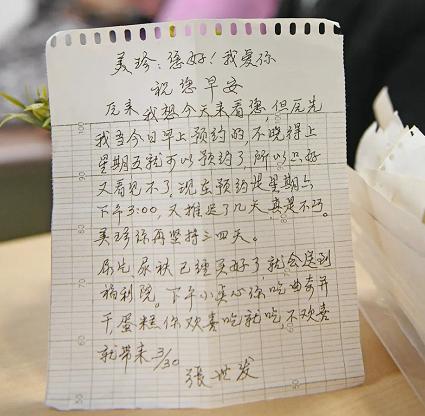 美珍：您好！我爱你
祝您早安
原来我想今天来看您，但原先
我当今日早上预约的，不晓得上
星期五就可以预约了，所以只好
又看见不了，现在预约是星期六
下午3:00，又推迟了几天，真是不巧。
美珍你再坚持三四天。
尿片、尿袜已经买好了，就会送到
福利院。下午小点心你吃曲奇并
干蛋糕你欢喜吃就吃，不欢喜
就带来 3/30
张世发